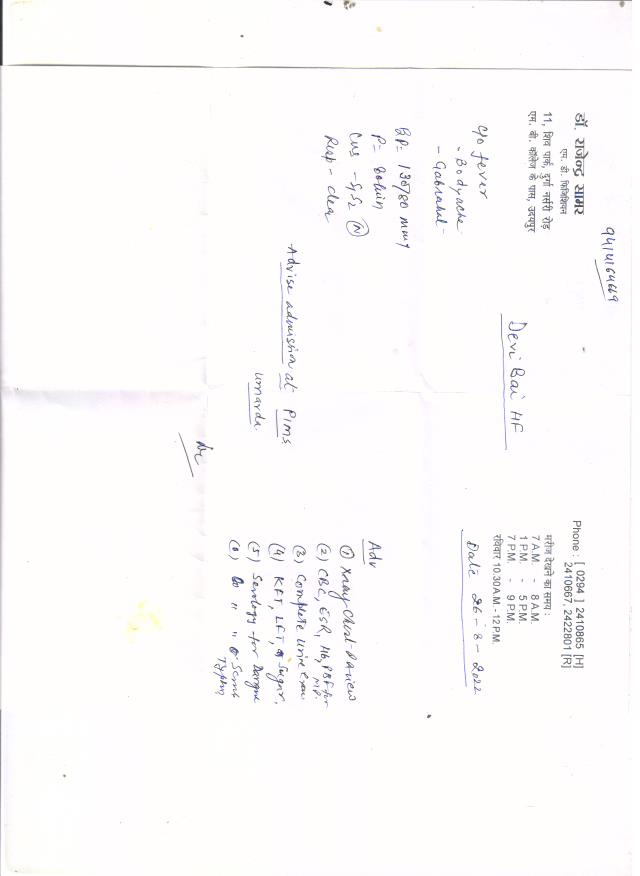 9414164669
डॉ. राजेन्द्र सामर
एम. डी. फिजिशियन
11, शिव पार्क, दुर्गा नर्सरी रोड़
एम. बी. कॉलेज के पास, उदयपुर
Phone : [ 0294 ] 2410865 [H]
2410667, 2422801 [R]
मरीज देखने का समय :
7 A.M. - 8 A.M.
1 P.M. - 5 P.M.
7 P.M. - 9 P.M.
रविवार 10.30 A.M. - 12 P.M.
Devi Bai HF
Date 26-8-2022
c/o fever
- Bodyache
- Gabrahat
BP= 138/80 mmHg
P= 80/min
CVS - S1S2 (N)
Resp - clear
Advise admission at Pims
umarda
Adv
(1) Xray Chest-PA view
(2) CBC, ESR, Hb, PBF for
MP.
(3) Complete Urine Exam
(4) KFT, LFT, Sugar,
(5) Serology for Dengue
(6) " " Scrub
Typhus